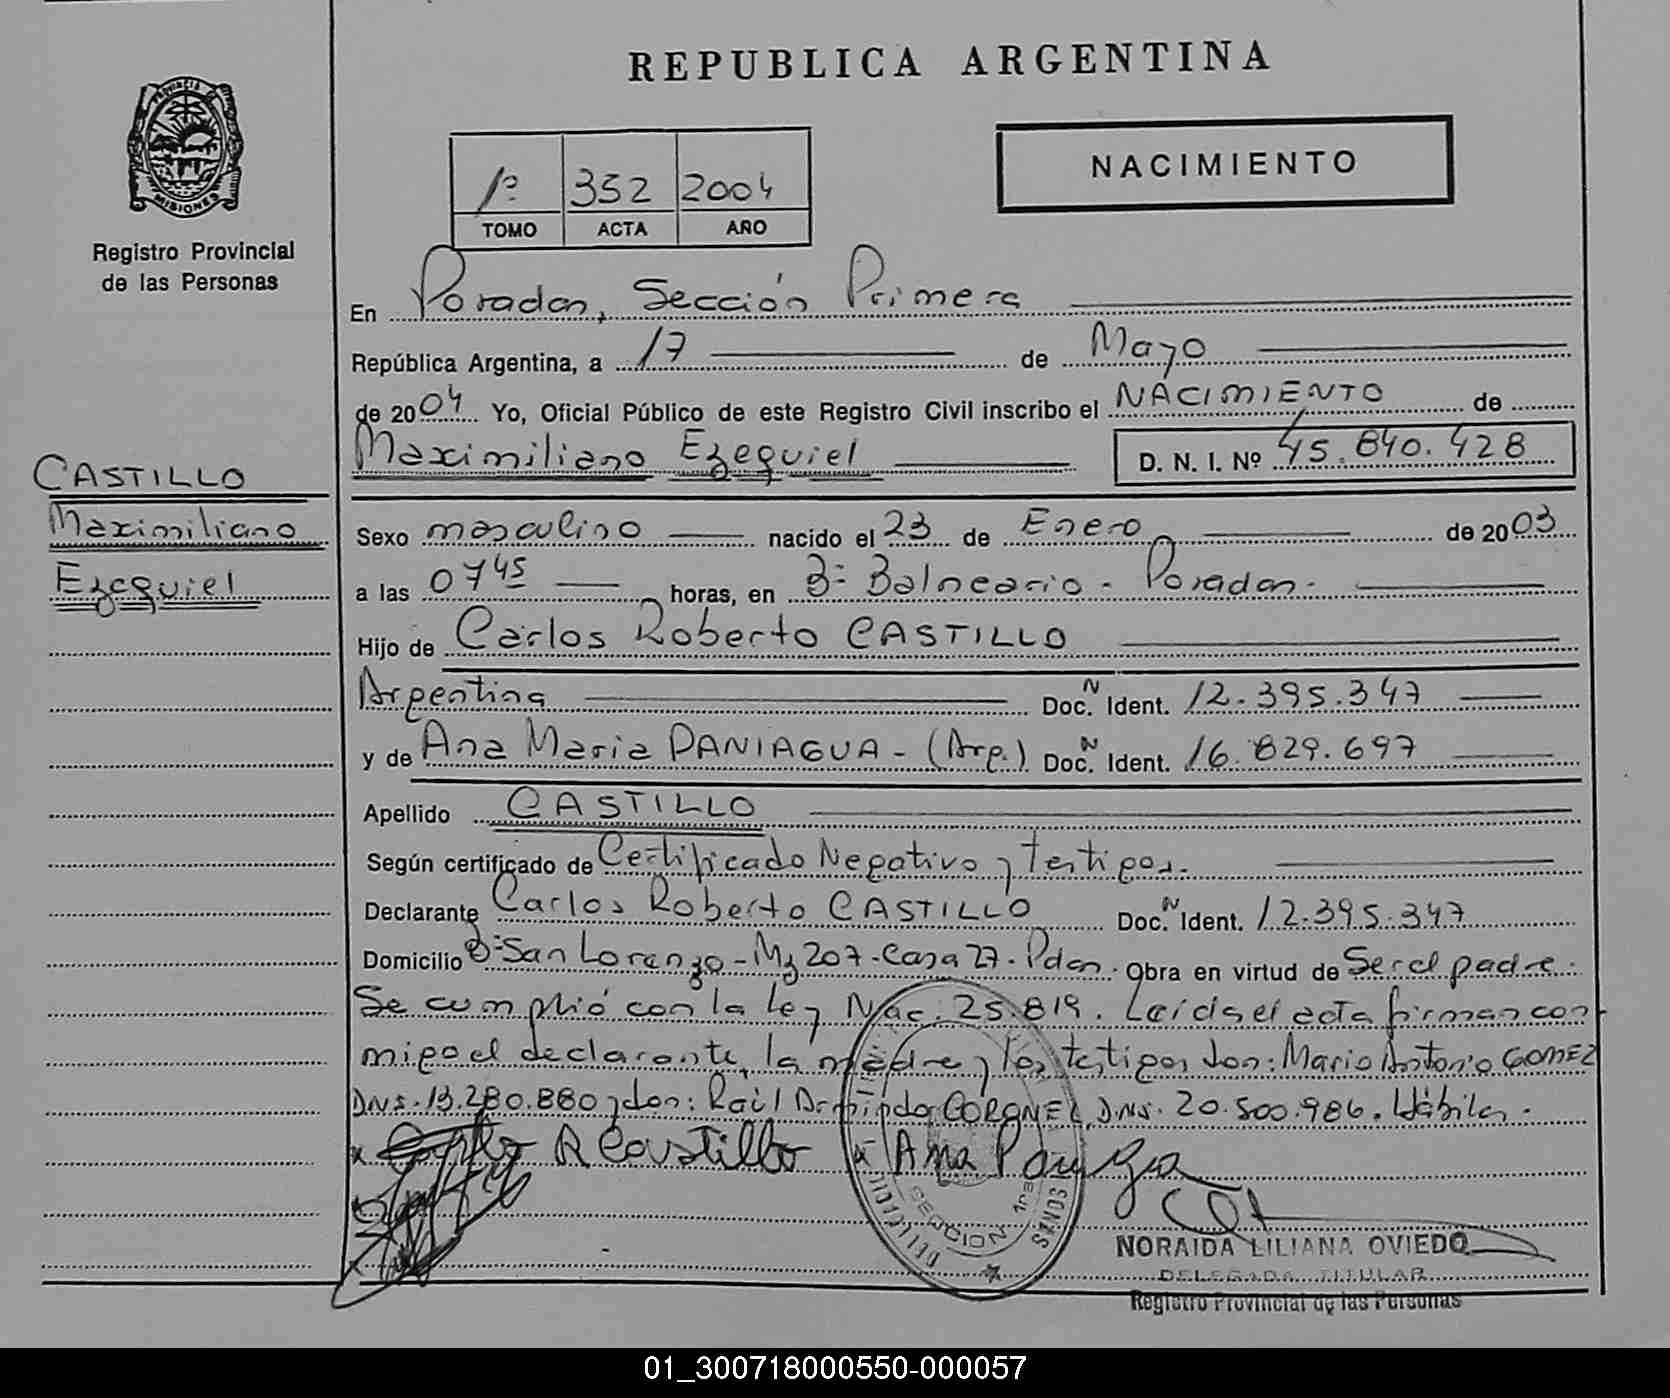 REPUBLICA ARGENTINA
PROVINCIA DE
MISIONES
Registro Provincial
de las Personas
1º 352 2004
TOMO ACTA AÑO
NACIMIENTO
En Posadas, Sección Primera
República Argentina, a 17 de Mayo
de 2004 Yo, Oficial Público de este Registro Civil inscribo el NACIMIENTO de
Maximiliano Ezequiel D. N. I. Nº 45.840.428
CASTILLO
Maximiliano
Ezequiel
Sexo masculino nacido el 23 de Enero de 2003
a las 07 45 horas, en Bº Balneario - Posadas.
Hijo de Carlos Roberto CASTILLO
Argentina Doc. N Ident. 12.395.347
y de Ana Maria PANIAGUA - (Arg.) Doc. N Ident. 16.829.697
Apellido CASTILLO
Según certificado de Certificado Negativo y testigos.
Declarante Carlos Roberto CASTILLO Doc. N Ident. 12.395.347
Domicilio Bº San Lorenzo - Mz 207 - Casa 27 - Pdas. Obra en virtud de Ser el padre.
Se cumplió con la Ley Nac. 25.819. Leída el acta firman con
migo el declarante, la madre y los testigos don: Mario Antonio GOMEZ
DNI. 13.280.880 y don: Raúl CORONEL DNI. 20.500.986. Hábiles.
x Carlo R Castillo x Ana
SECCION 1ra
MISIONES
NORAIDA LILIANA OVIEDO
DELEGADA TITULAR
Registro Provincial de las Personas
01_300718000550-000057